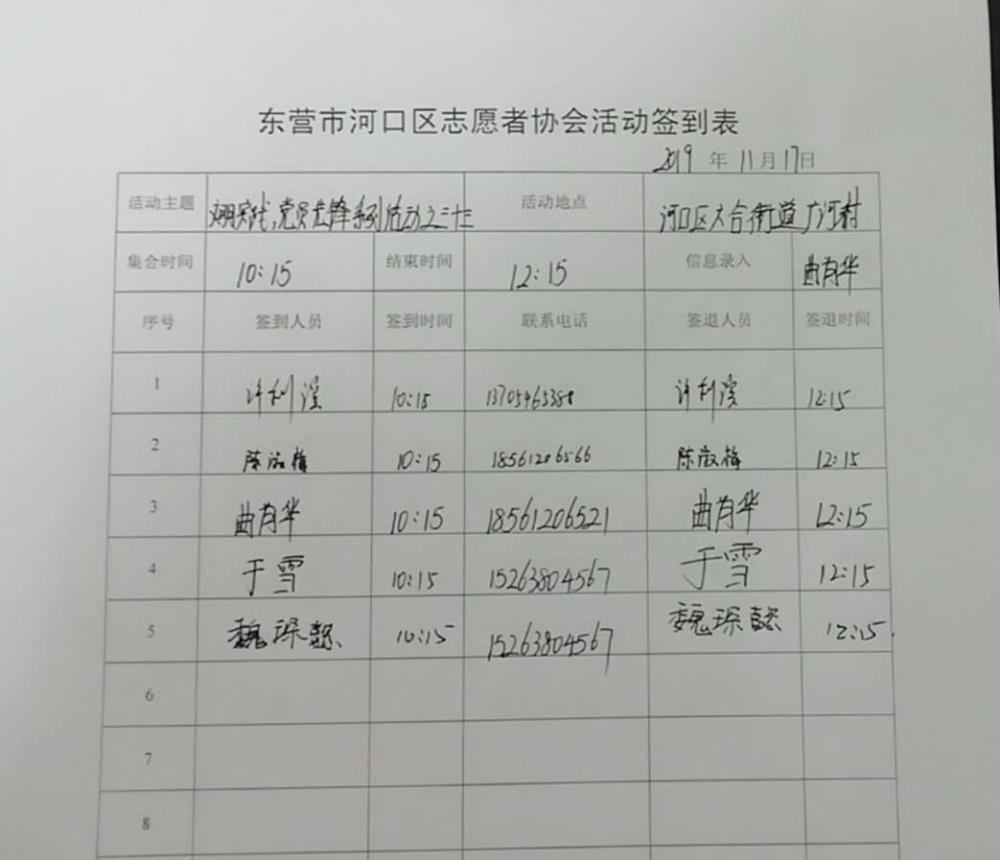 东营市河口区志愿者协会活动签到表
2019 年 11月17日
活动主题 文明实践,党员先锋系列活动之三十三 活动地点 河口区六合街道广河村
集合时间 10:15 结束时间 12:15 信息录入 曲有华
序号 签到人员 签到时间 联系电话 签退人员 签退时间
1 许利滨 10:15 13705465388 许利滨 12:15
2 陈淑梅 10:15 18561206566 陈淑梅 12:15
3 曲有华 10:15 18561206521 曲有华 12:15
4 于雪 10:15 15263804567 于雪 12:15
5 魏琛懿 10:15 15263804567 魏琛懿 12:15
6
7
8